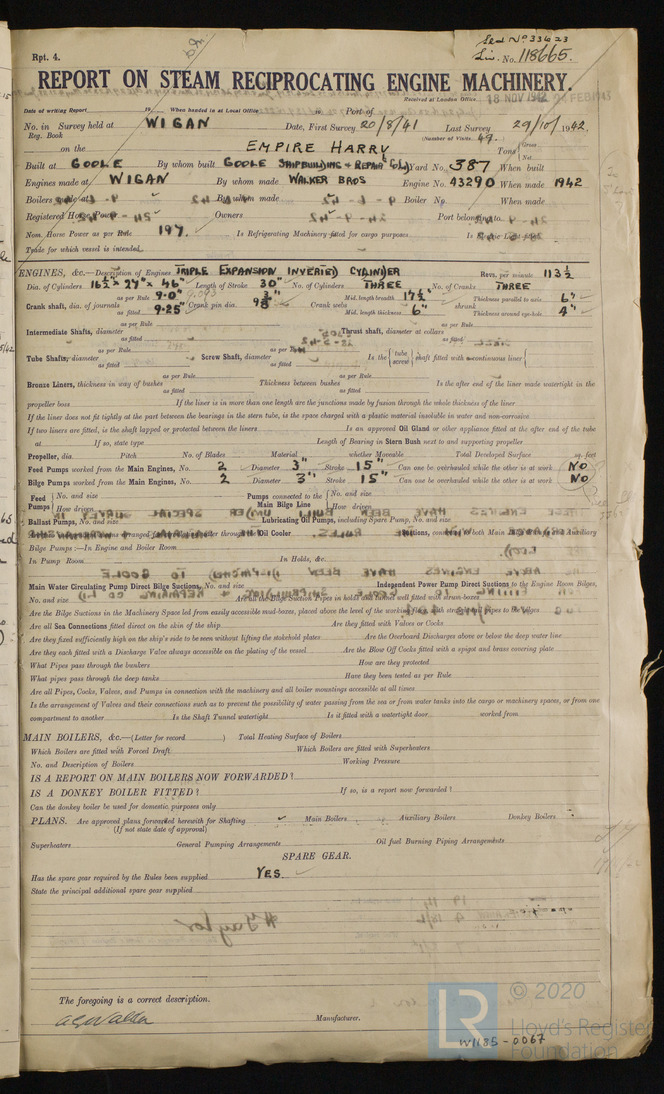 Sld Nº 33623
Rpt. 4.
Liv. No. 118665.
REPORT ON STEAM RECIPROCATING ENGINE MACHINERY.
Received at London Office 18 NOV 1942
Date of writing Report 19 When handed in at Local Office 19 Port of
No. in Survey held at WIGAN Date, First Survey 20/8/41 Last Survey 29/10/1942
Reg. Book (Number of Visits 49.)
on the EMPIRE HARRY Tons { Gross
Net
Built at GOOLE By whom built GOOLE SHIPBUILDING & REPAIR Co Ld Yard No. 387 When built
Engines made at WIGAN By whom made WALKER BROS Engine No. 43290 When made 1942
Boilers made at By whom made Boiler No. When made
Registered Horse Power Owners Port belonging to
Nom. Horse Power as per Rule 197. Is Refrigerating Machinery fitted for cargo purposes Is Electric Light fitted
Trade for which vessel is intended
ENGINES, &c.—Description of Engines TRIPLE EXPANSION INVERTED CYLINDER Revs. per minute 113½
Dia. of Cylinders 16½" x 27" x 46" Length of Stroke 30" No. of Cylinders THREE No. of Cranks THREE
Crank shaft, dia. of journals as per Rule 9.0" 9.093 Crank pin dia. 9⅜" Crank webs Mid. length breadth 17½" shrunk Thickness parallel to axis 6"
as fitted 9.25" Mid. length thickness 6" Thickness around eye-hole 4"
Intermediate Shafts, diameter as per Rule as fitted Thrust shaft, diameter at collars as per Rule as fitted
Tube Shafts, diameter as per Rule as fitted Screw Shaft, diameter as per Rule as fitted Is the { tube screw } shaft fitted with a continuous liner {
Bronze Liners, thickness in way of bushes as per Rule as fitted Thickness between bushes as per Rule as fitted Is the after end of the liner made watertight in the
propeller boss If the liner is in more than one length are the junctions made by fusion through the whole thickness of the liner
If the liner does not fit tightly at the part between the bearings in the stern tube, is the space charged with a plastic material insoluble in water and non-corrosive
If two liners are fitted, is the shaft lapped or protected between the liners Is an approved Oil Gland or other appliance fitted at the after end of the tube
at If so, state type Length of Bearing in Stern Bush next to and supporting propeller
Propeller, dia. Pitch No. of Blades Material whether Moveable Total Developed Surface sq. feet
Feed Pumps worked from the Main Engines, No. 2 Diameter 3" Stroke 15" Can one be overhauled while the other is at work NO
Bilge Pumps worked from the Main Engines, No. 2 Diameter 3" Stroke 15" Can one be overhauled while the other is at work NO
Feed Pumps { No. and size Pumps connected to the Main Bilge Line { No. and size
How driven How driven
Ballast Pumps, No. and size Lubricating Oil Pumps, including Spare Pump, No. and size
Oil Cooler
Bilge Pumps:—In Engine and Boiler Room
In Pump Room In Holds, &c.
Main Water Circulating Pump Direct Bilge Suctions, No. and size Independent Power Pump Direct Suctions to the Engine Room Bilges,
No. and size Are all the Bilge Suction Pipes in holds and tunnel well fitted with strum-boxes
Are the Bilge Suctions in the Machinery Space led from easily accessible mud-boxes, placed above the level of the working floor, with straight tail pipes to the bilges
Are all Sea Connections fitted direct on the skin of the ship Are they fitted with Valves or Cocks
Are they fixed sufficiently high on the ship's side to be seen without lifting the stokehold plates Are the Overboard Discharges above or below the deep water line
Are they each fitted with a Discharge Valve always accessible on the plating of the vessel Are the Blow Off Cocks fitted with a spigot and brass covering plate
What Pipes pass through the bunkers How are they protected
What pipes pass through the deep tanks Have they been tested as per Rule
Are all Pipes, Cocks, Valves, and Pumps in connection with the machinery and all boiler mountings accessible at all times
Is the arrangement of Valves and their connections such as to prevent the possibility of water passing from the sea or from water tanks into the cargo or machinery spaces, or from one
compartment to another Is the Shaft Tunnel watertight Is it fitted with a watertight door worked from
MAIN BOILERS, &c.—(Letter for record ) Total Heating Surface of Boilers
Which Boilers are fitted with Forced Draft Which Boilers are fitted with Superheaters
No. and Description of Boilers Working Pressure
IS A REPORT ON MAIN BOILERS NOW FORWARDED?
IS A DONKEY BOILER FITTED? If so, is a report now forwarded?
Can the donkey boiler be used for domestic purposes only
PLANS. Are approved plans forwarded herewith for Shafting Main Boilers Auxiliary Boilers Donkey Boilers
(If not state date of approval)
Superheaters General Pumping Arrangements Oil fuel Burning Piping Arrangements
SPARE GEAR.
Has the spare gear required by the Rules been supplied YES.
State the principal additional spare gear supplied
The foregoing is a correct description.
Manufacturer.
LR © 2020
Lloyd's Register
Foundation
W1185-0067